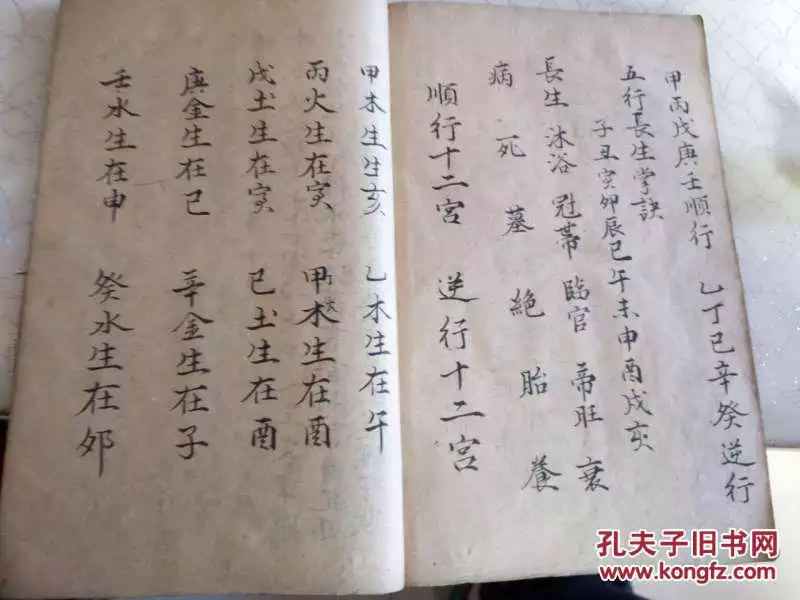 甲丙戊庚壬順行 乙丁己辛癸逆行
五行長生掌訣
子丑寅卯辰巳午未申酉戌亥
長生 沐浴 冠帶 臨官 帝旺 衰
病 死 墓 絶 胎 養
順行十二宮 逆行十二宮
甲木生生亥 乙木生在午
丙火生在寅 甲木生在酉
戊土生在寅 己土生在酉
庚金生在巳 辛金生在子
壬水生在申 癸水生在卯
孔夫子旧书网
www.kongfz.com